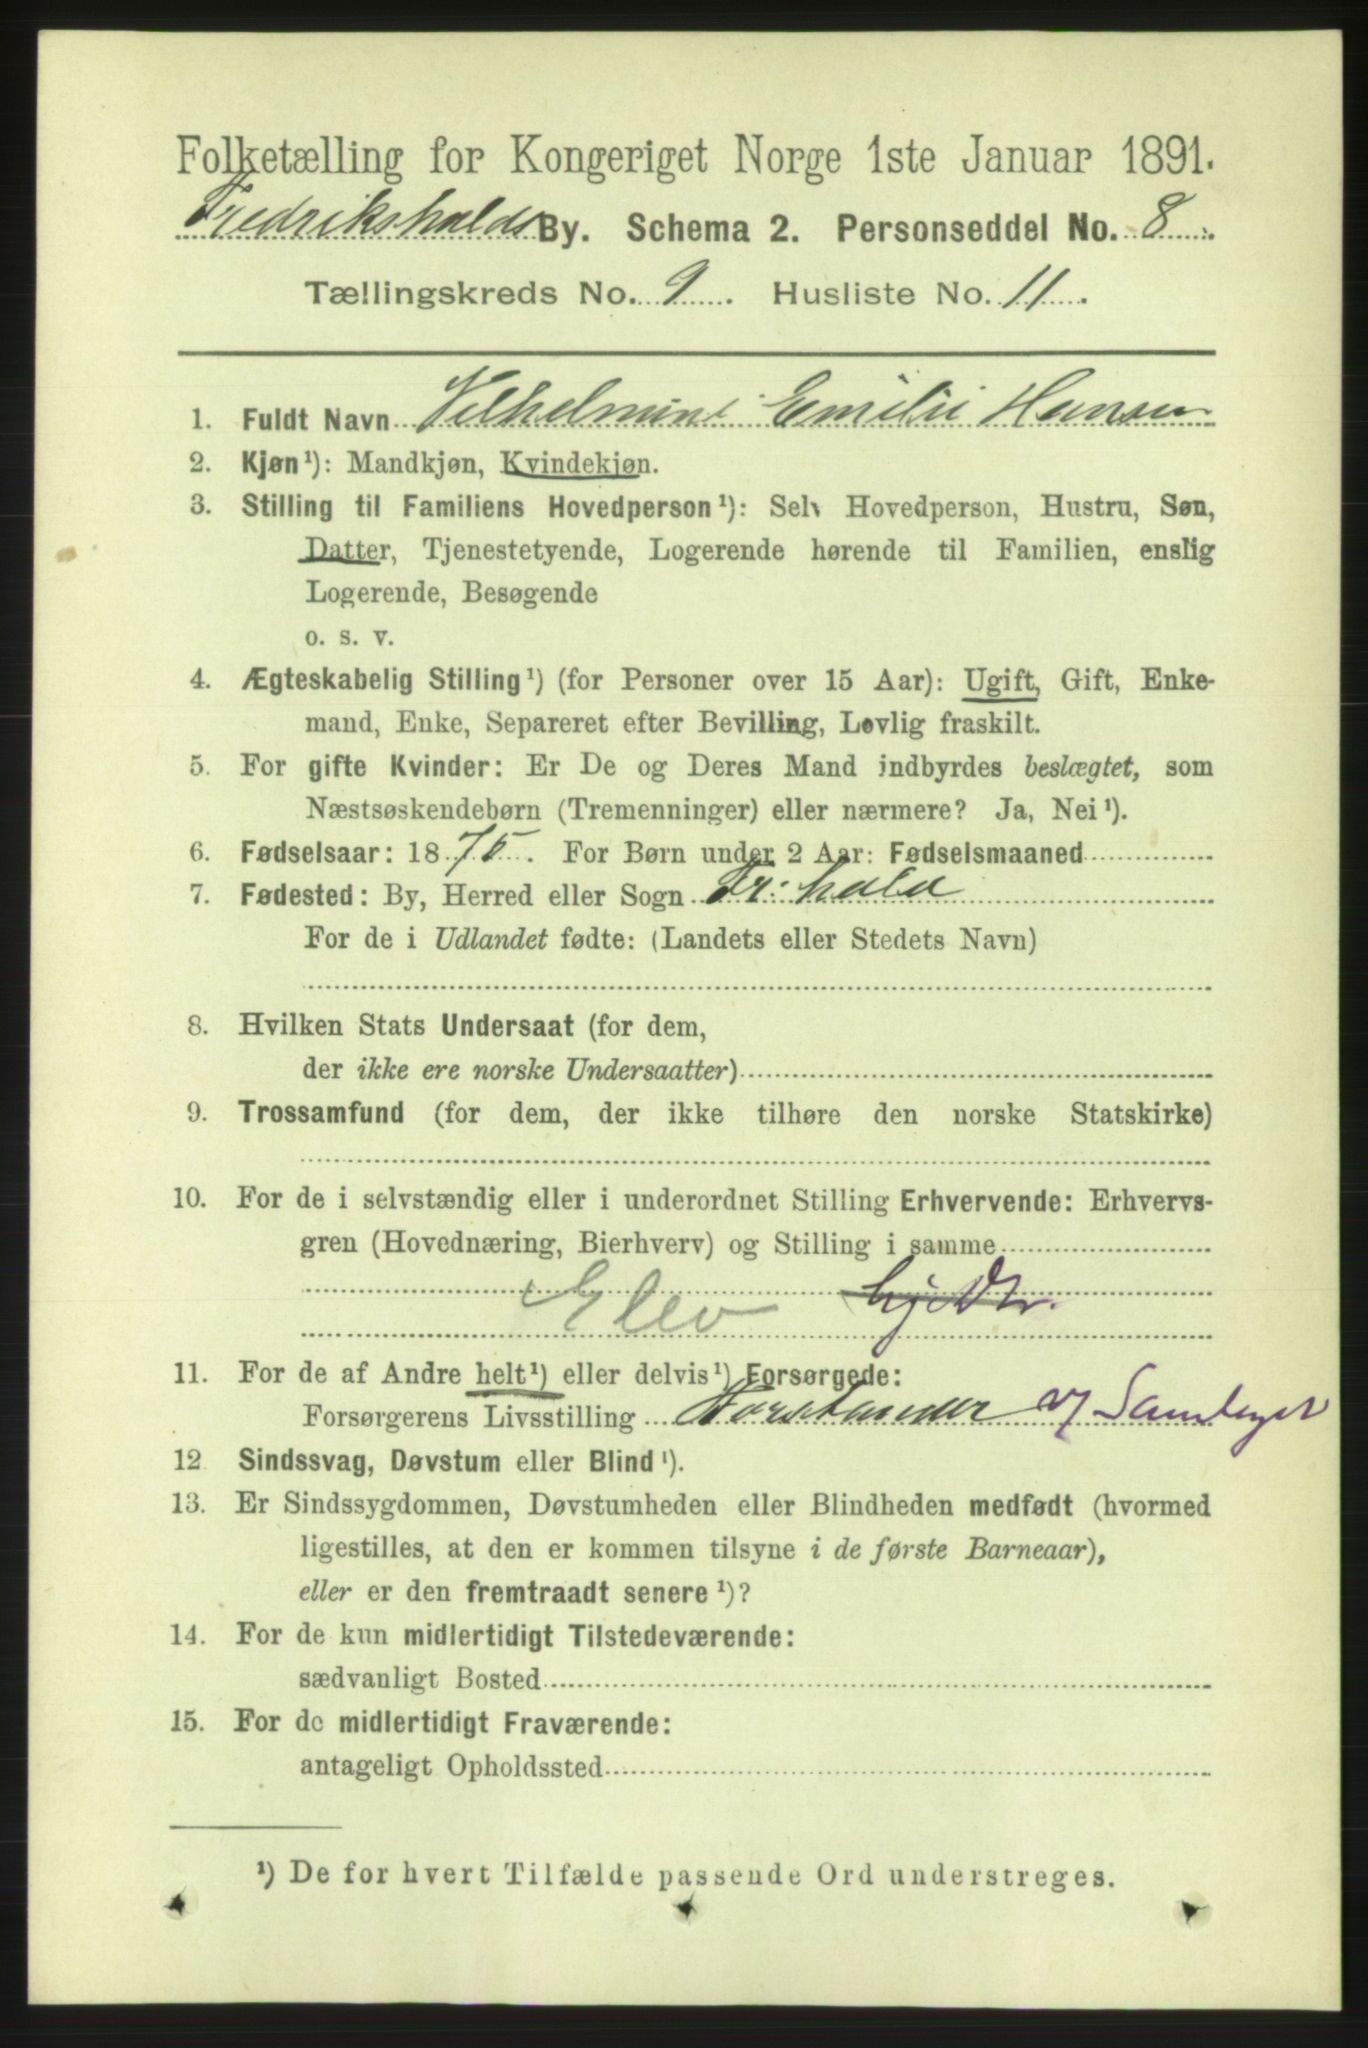 Folketælling for Kongeriget Norge 1ste Januar 1891.
Fredrikshalds By. Schema 2. Personseddel No. 8
Tællingskreds No. 9. Husliste No. 11.
1. Fuldt Navn Vilhelmine Emilie Hansen
2. Kjøn¹): Mandkjøn, Kvindekjøn.
3. Stilling til Familiens Hovedperson¹): Selv Hovedperson, Hustru, Søn,
Datter, Tjenestetyende, Logerende hørende til Familien, enslig
Logerende, Besøgende
o. s. v.
4. Ægteskabelig Stilling¹) (for Personer over 15 Aar): Ugift, Gift, Enke-
mand, Enke, Separeret efter Bevilling, Lovlig fraskilt.
5. For gifte Kvinder: Er De og Deres Mand indbyrdes beslægtet, som
Næstsøskendebørn (Tremenninger) eller nærmere? Ja, Nei¹).
6. Fødselsaar: 1875. For Børn under 2 Aar: Fødselsmaaned
7. Fødested: By, Herred eller Sogn Fr: hald
For de i Udlandet fødte: (Landets eller Stedets Navn)
8. Hvilken Stats Undersaat (for dem,
der ikke ere norske Undersaatter)
9. Trossamfund (for dem, der ikke tilhøre den norske Statskirke)
10. For de i selvstændig eller i underordnet Stilling Erhvervende: Erhvervs-
gren (Hovednæring, Bierhverv) og Stilling i samme
Elev
11. For de af Andre helt¹) eller delvis¹) Forsørgede:
Forsørgerens Livsstilling Forstander v/ Samlaget
12. Sindssvag, Døvstum eller Blind¹).
13. Er Sindssygdommen, Døvstumheden eller Blindheden medfødt (hvormed
ligestilles, at den er kommen tilsyne i de første Barneaar),
eller er den fremtraadt senere¹)?
14. For de kun midlertidigt Tilstedeværende:
sædvanligt Bosted
15. For de midlertidigt Fraværende:
antageligt Opholdssted
¹) De for hvert Tilfælde passende Ord understreges.